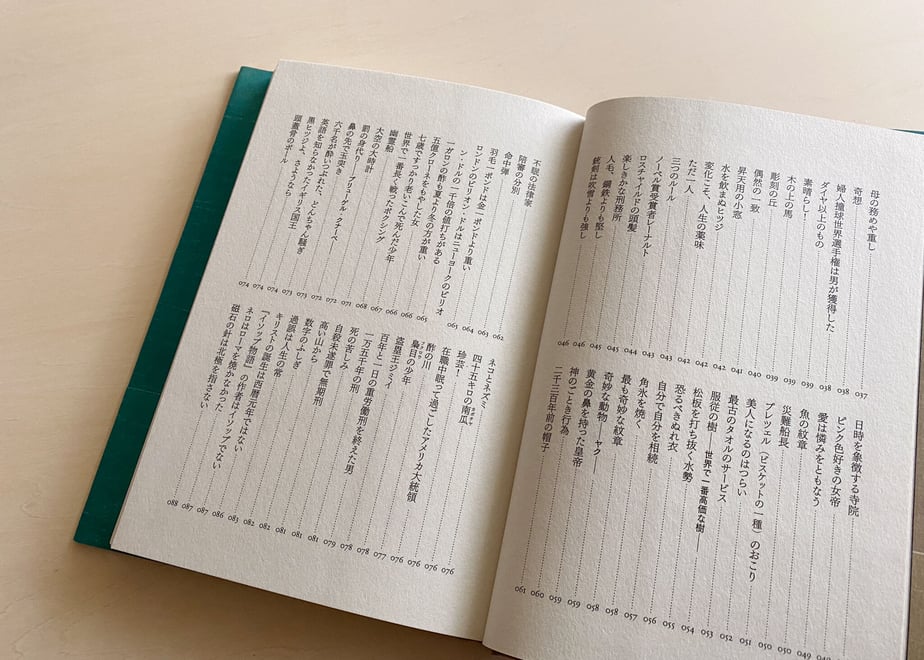 母の務めや重し 037
奇想 038
婦人撞球世界選手権は男が獲得した 038
ダイヤ以上のもの 039
素晴らし! 039
木の上の馬 039
彫刻の丘 040
偶然の一致 040
昇天用の小窓 041
水を飲まぬヒツジ 042
変化こそ、人生の薬味 042
ただ一人 043
三つのルール 043
ノーベル賞受賞者ビーナルト 044
ロスチャイルドの頭髪 045
楽しきかな刑務所 045
人毛、鋼鉄よりも堅し 046
銃剣は吹雪よりも強し 046
日時を象徴する寺院
ピンク色好きの女帝
愛は憐みをともなう 049
魚の紋章 050
災難船長 050
プレツェル(ビスケットの一種)のおこり 051
美人になるのはつらい 052
最古のタオルのサービス 053
服従の樹――世界で一番高価な樹―― 054
松板を打ち抜く水勢 055
恐るべきぬれ衣 056
自分で自分を相続 057
角氷を焼く 058
最も奇妙な紋章 058
奇妙な動物――ヤク―― 059
黄金の鼻を持った皇帝 059
神のごとき行為 060
二千三百年前の帽子 061
不眠の法律家 062
陪審の分別 063
命中弾 064
羽毛一ポンドは金一ポンドより重い 065
ロンドンのビリオン・ドルはニューヨークのビリオ
ン・ドルの一千倍の値打ちがある 065
一ガロンの酢も夏より冬の方が重い 066
五億クローネをもやした女 066
七歳ですっかり老いこんで死んだ少年 067
世界で一番長く戦ったボクシング 068
幽霊船 071
大空の大時計 072
罰の身代り――ブリューゲル・クナーベ―― 072
鼻の先で玉突き 073
六千名が酔いつぶれた、どんちゃん騒ぎ 073
英語を知らなかったイギリス国王 074
黒ヒツジよ、さようなら 074
頭蓋骨のボール 074
ネコとネズミ 076
四十五キロの南瓜 076
珍芸! 076
在職中眠って過ごしたアメリカ大統領 076
酢の川 077
梟目の少年 078
盗塁王ジミイ 078
百年と一日の重労働刑を終えた男 079
一万五千年の刑 081
死の苦しみ 081
自殺未遂罪で無期刑 081
高い山から 082
数字のふしぎ 082
過誤は人生の常 083
キリストの誕生は西暦元年ではない 086
『イソップ物語』の作者はイソップでない 087
ネロはローマを焼かなかった 087
磁石の針は北極を指さない 088